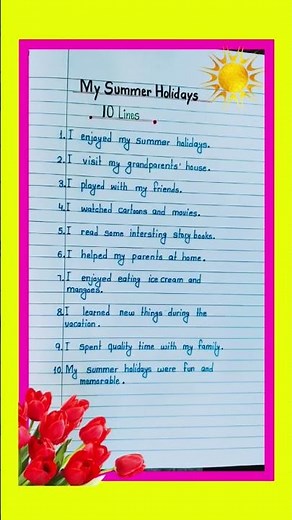 My Summer Holidays
10 Lines
1. I enjoyed my summer holidays.
2. I visit my grandparents' house.
3. I played with my friends.
4. I watched cartoons and movies.
5. I read some intersting story books.
6. I helped my parents at home.
7. I enjoyed eating ice cream and
mangoes.
8. I learned new things during the
vacation.
9. I spent quality time with my family.
10. My summer holidays were fun and
memorable.